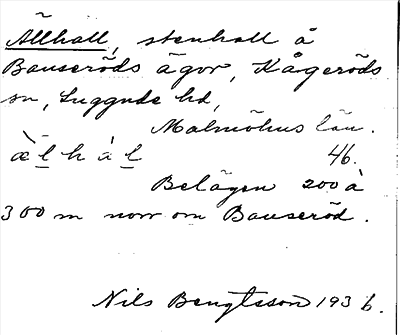 Ällhall, stenhall å
Bauseröds ägor, Kågeröds
sn, Luggude hd,
Malmöhus län.
æ̀l h à l 46.
Belägen 200 à
300 m norr om Bauseröd.
Nils Bengtsson 1936.